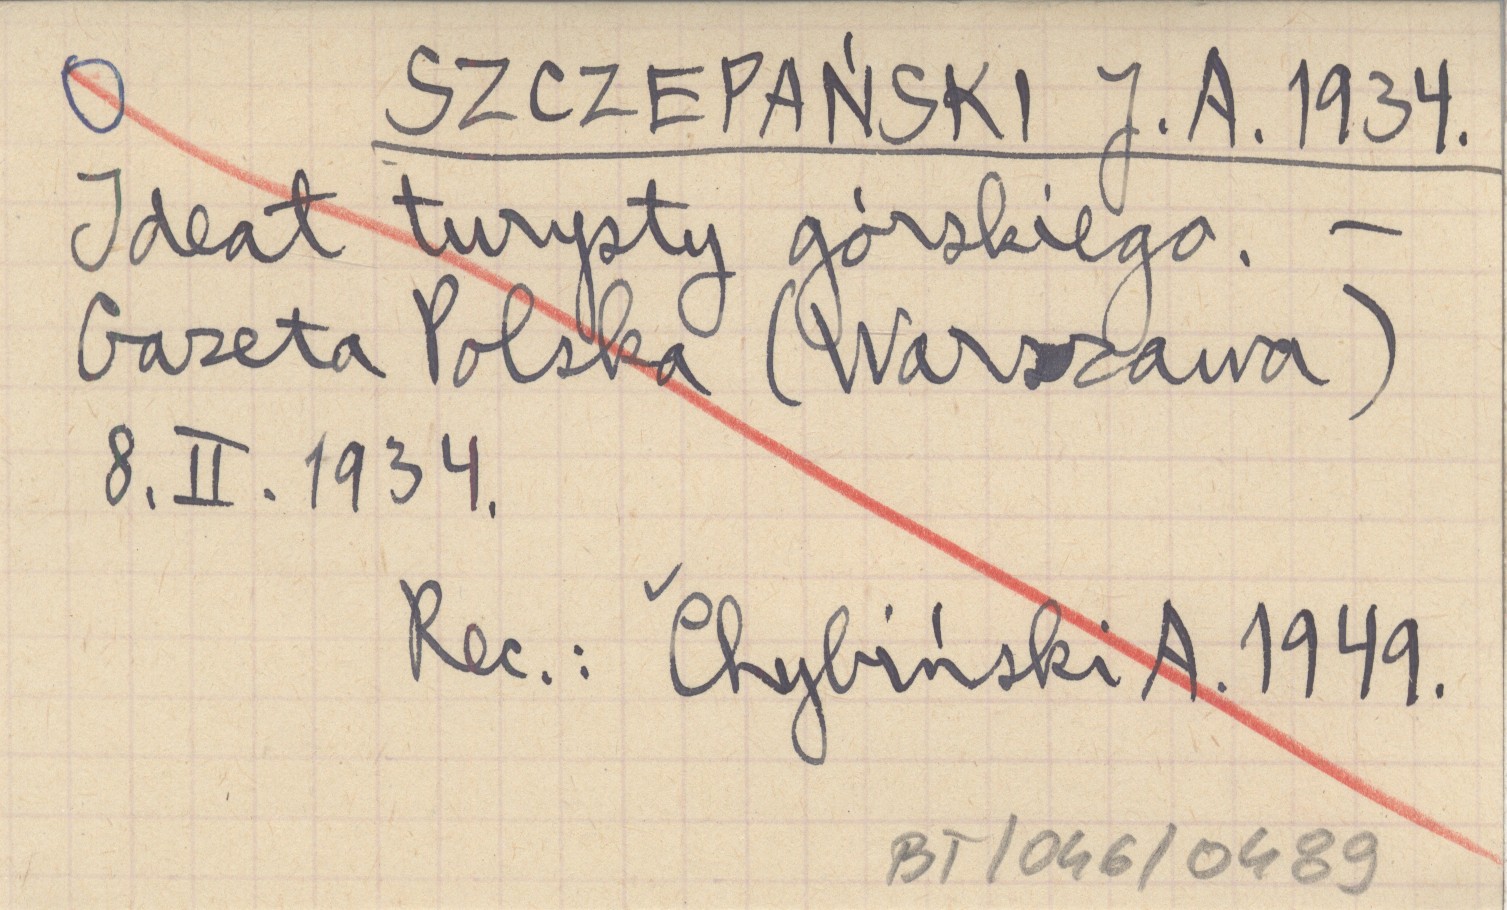 SZCZEPAŃSKI J. A. 1934.
Ideał turysty górskiego. –
Gazeta Polska (Warszawa)
8. II. 1934.
Rec.: ✓Chybiński A. 1949.
BT/046/0489